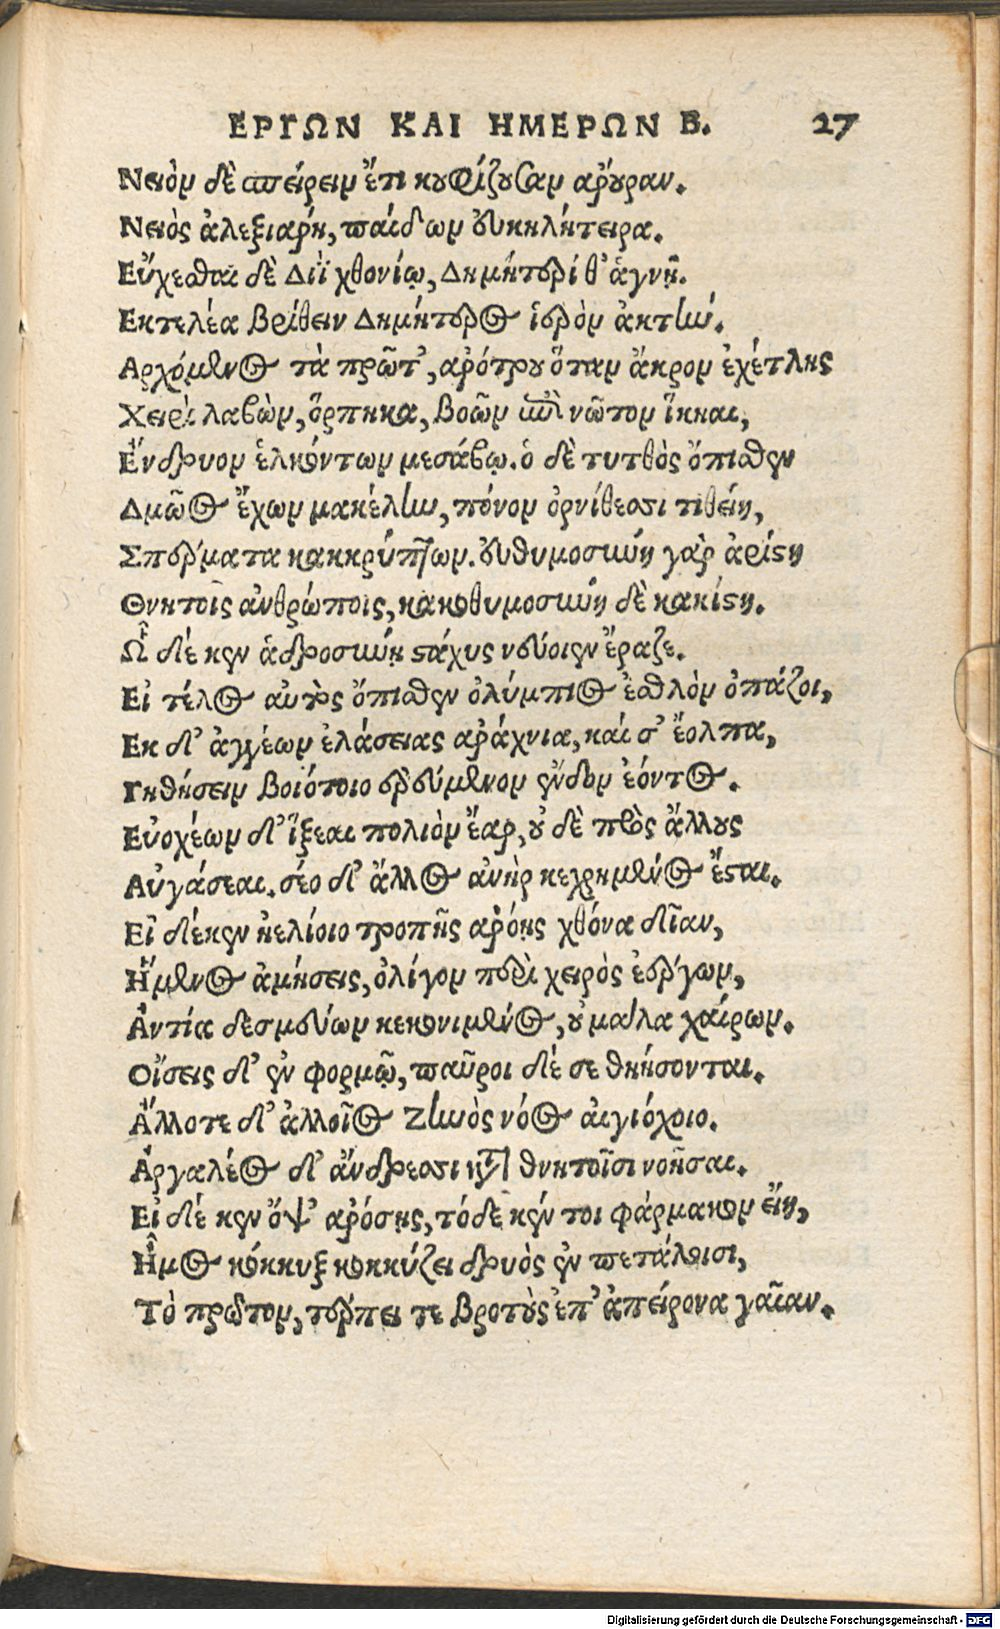 ΕΡΓΩΝ ΚΑΙ ΗΜΕΡΩΝ Β. 27
Νειὸν δὲ σπείρειν ἔτι κουφίζουσαν αρουραν.
Νειὸς ἀλεξιαρή, παίδων ουκηλήτειρα.
Εὔχεσθαι δὲ Διῒ χθονίῳ, Δημήτερί θ' ἁγνῇ.
Εκτελέα βρίθειν Δημήτερος ἱερὸν ἀκτὴν.
Αρχόμενος τὰ πρῶτ', αρότρου ὅταν ἄκρον ἐχέτλης
Χειρὶ λαβὼν, ὅρπηκα, βοῶν ἐπὶ νῶτον ἵκηαι,
Ἔνδρυον ἑλκόντων μεσάβῳ. ὁ δὲ τυτθὸς ὄπισθεν
Δμῶος ἔχων μακέλην, πόνον ὀρνίθεσσι τιθείη,
Σπέρματα κακκρύπτων. ευθυμοσύνη γὰρ ἀρίστη
Θνητοῖς ἀνθρώποις, κακοθυμοσύνη δὲ κακίστη.
Ὧδέ κεν ἁδροσύνῃ στάχυς νεύοιεν ἔραζε.
Εἰ τέλος αὐτὸς ὄπισθεν ὀλύμπιος ἐσθλὸν ὀπάζοι,
Εκ δ' ἀγγέων ἐλάσειας αράχνια, καί σ' ἔολπα,
Γηθήσειν βοιότοιο ερεύμενον ἔνδον ἐόντος.
Εὐοχέων δ' ἵξεαι πολιὸν ἔαρ, οὐ δὲ πρὸς ἄλλους
Αὐγάσεαι. σέο δ' ἄλλος ἀνὴρ κεχρημένος ἔσται.
Εἰ δέ κεν ἠελίοιο τροπῆς αρόῃς χθόνα δῖαν,
Ἥμενος ἀμήσεις, ὀλίγον περὶ χειρὸς ἐέργων,
Ἀντία δεσμεύων κεκονιμένος, οὐ μάλα χαίρων.
Οἴσεις δ' ἐν φορμῷ, παῦροι δέ σε θηήσονται.
Ἄλλοτε δ' ἀλλοῖος Ζηνὸς νόος αἰγιόχοιο.
Ἀργαλέος δ' ἄνδρεσσι κατὰ θνητοῖσι νοῆσαι.
Εἰ δέ κεν ὄψ' αρόσῃς, τόδε κέν τοι φάρμακον εἴη,
Ἦμος κόκκυξ κοκκύζει δρυὸς ἐν πετάλοισι,
Τὸ πρῶτον, τέρπει τε βροτοὺς ἐπ' ἀπείρονα γαῖαν.
Digitalisierung gefördert durch die Deutsche Forschungsgemeinschaft - DFG